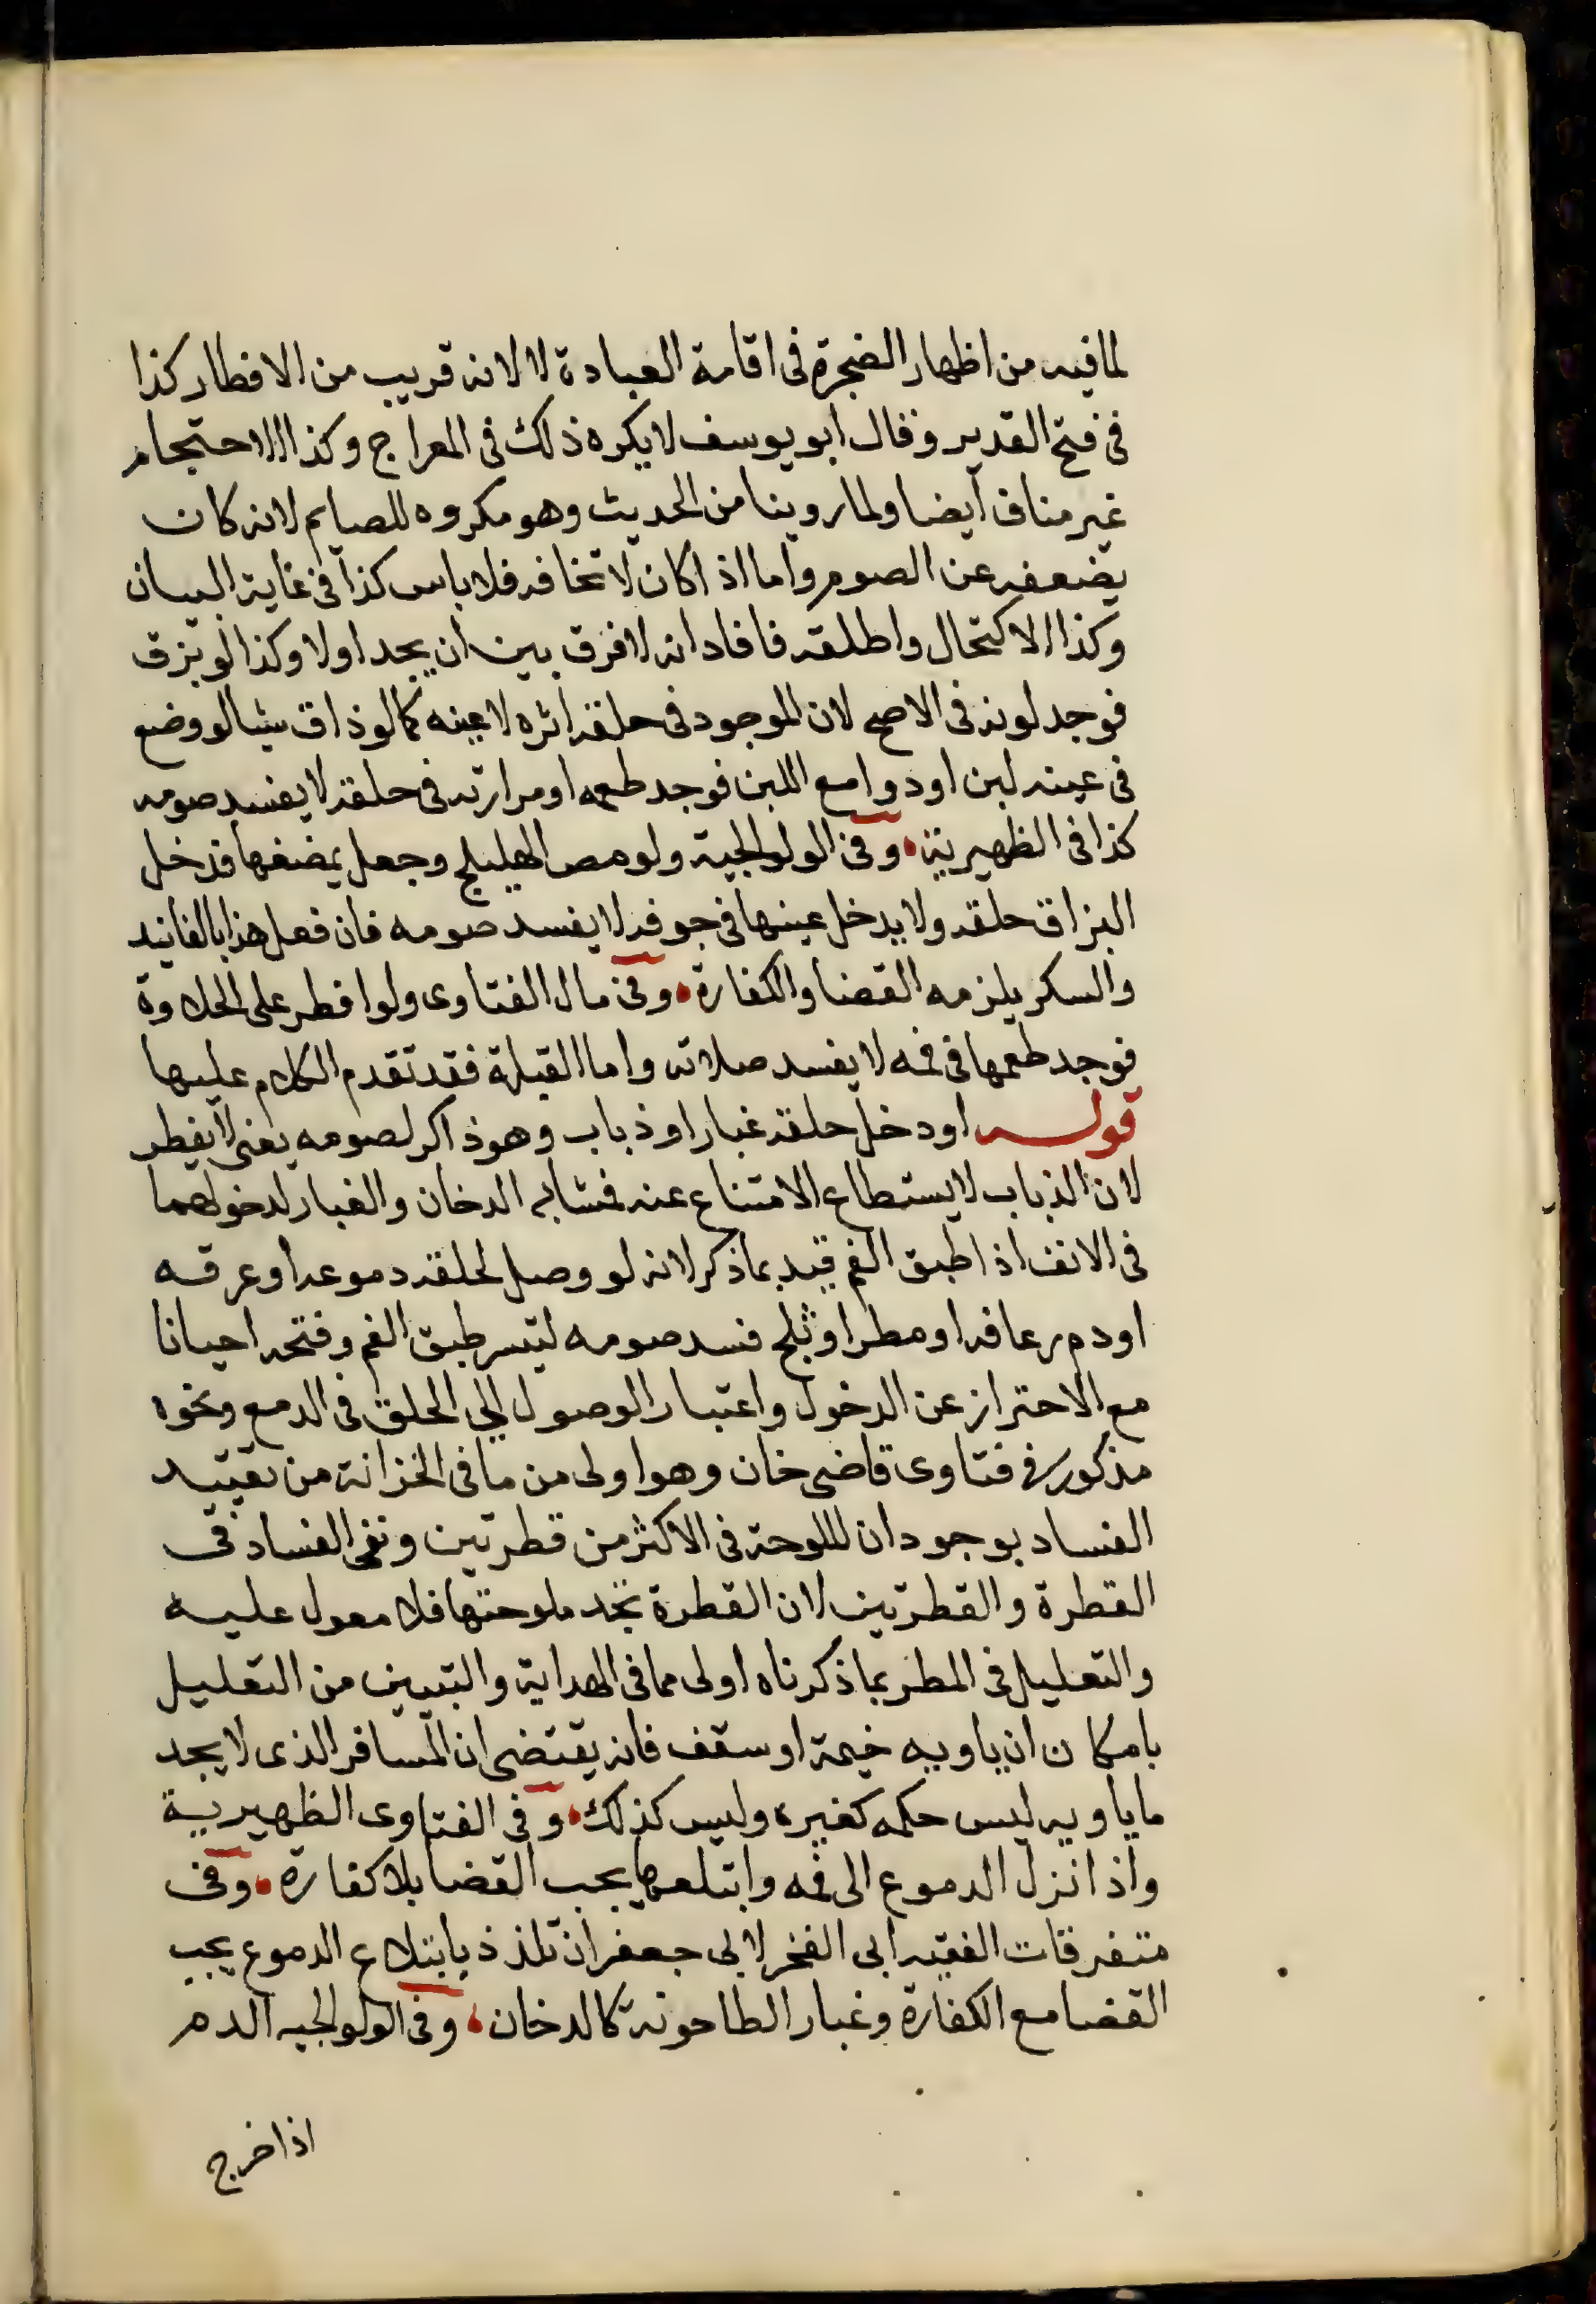 لما فيه من اظهار الضجرة فى اقامة العبادة لا لانه قريب من الافطار كذا
فى فتح القدير وقال ابو يوسف لا يكره ذلك فى المعراج وكذا الاحتجام
غير مناف ايضا ولما روينا من الحديث وهو مكروه للصايم لانه كان
يضعفه عن الصوم واما اذا كان لا تخافه فلا باس كذا فى غاية البيان
وكذا الاكتحال واطلقه فافاد انه لا فرق بين ان يجد اولا وكذا لو بزق
فوجد لونه فى الاصح لان الموجود فى حلقه اثره لا عينه كما لو ذاق شيا لو وضع
فى عينه لبن او دوا مع اللبن فوجد طعمه او مرارته فى حلقه لا يفسد صومه
كذا فى الظهيرية وفى الولوالجية ولو مص الهليلج وجعل يمضغها فدخل
البزاق حلقه ولا يدخل عينها فى جوفه لا يفسد صومه فان فعل هذا بالفانيد
والسكر يلزمه القضا والكفارة وفى مال الفتاوى ولو افطر على الحلاوة
فوجد طعمها فى فمه لا يفسد صلاته واما القبلة فقد تقدم الكلام عليها
قوله او دخل حلقه غبار او ذباب وهو ذاكر لصومه يعنى لا يفطر
لان الذباب لا يستطاع الامتناع عنه فشابه الدخان والغبار لدخولهما
فى الانف اذا طبق الفم قيد بما ذكر لانه لو وصل لحلقه دموعه او عرقه
او دم رعافه او مطر او ثلج فسد صومه ليتسر طبق الفم وفتحه احيانا
مع الاحتراز عن الدخول واعتبار الوصول الى الحلق فى الدمع ونحوه
مذكور فى فتاوى قاضى خان وهو اولى من ما فى الخزانة من تقييد
الفساد بوجودان للملوحة فى الاكثر من قطرتين ونفى الفساد فى
القطرة والقطرتين لان القطرة تجد ملوحتها فلا معول عليه
والتعليل فى المطر بما ذكرناه اولى مما فى الهداية والتبيين من التعليل
بامكان ان ياويه خيمة او سقف فانه يقتضى ان المسافر الذى لا يجد
ما ياويه ليس حكمه كغيره وليس كذلك وفى الفتاوى الظهيرية
واذا نزل الدموع الى فمه وابتلعها يجب القضا بلا كفارة وفى
متفرقات الفقيه ابى الفخر لابى جعفر ان تلذذ بابتلاع الدموع يجب
القضا مع الكفارة وغبار الطاحونة كالدخان وفى الولوالجيه الدم
اذا خرج